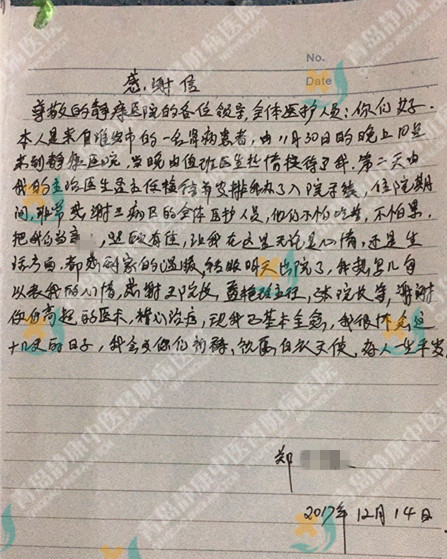 No.
Date
感谢信
尊敬的静康医院的各位领导,全体医护人员:你们好.
本人是来自潍坊市的一名肾病患者,由11月30日的晚上10点
来到静康医院,当晚由值班医生热情接待了我.第二天由
我的主治医生孟主任接待并安排办了入院手续,住院期
间,非常感谢三病区的全体医护人员,他们不怕吃苦,不怕累.
把我们当,让我在这里无论是心情,还是生
活方面,都感到家的温暖,转眼明天出院了,我想写几句
以表我的心情,感谢王院长,孟主任,院长等,谢谢
你们高超的医术,精心治疗,现我已基本全愈,我很怀念这
十几天的日子,我会为你们祈祷,祝愿白衣天使,好人一生平安
郑
2017年12月14日
青岛静康中医肾病医院